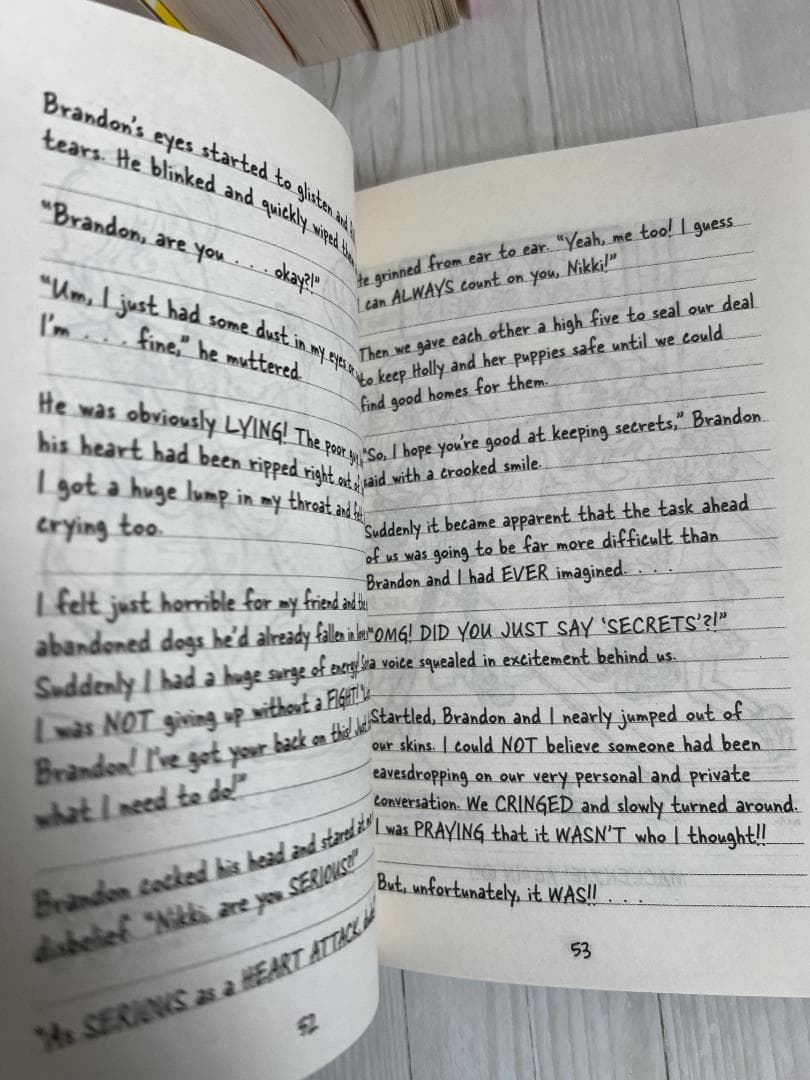 Brandon's eyes started to glisten and
tears. He blinked and quickly wiped
"Brandon, are you . . . okay?!"
"Um, I just had some dust in my eyes
I'm . . . fine," he muttered.
He was obviously LYING! The poor
his heart had been ripped right out of
I got a huge lump in my throat and
crying too.
I felt just horrible for my friend and
abandoned dogs he'd already fallen in
Suddenly I had a huge surge of energy!
I was NOT giving up without a FIGHT!
Brandon! I've got your back on this!
what I need to do!"
Brandon cocked his head and stared at
disbelief. "Nikki, are you SERIOUS?!"
"As SERIOUS as a HEART ATTACK,
52
He grinned from ear to ear. "Yeah, me too! I guess
I can ALWAYS count on you, Nikki!"
Then we gave each other a high five to seal our deal
to keep Holly and her puppies safe until we could
find good homes for them.
"So, I hope you're good at keeping secrets," Brandon
said with a crooked smile.
Suddenly it became apparent that the task ahead
of us was going to be far more difficult than
Brandon and I had EVER imagined. . . .
"OMG! DID YOU JUST SAY 'SECRETS'?!"
a voice squealed in excitement behind us.
Startled, Brandon and I nearly jumped out of
our skins. I could NOT believe someone had been
eavesdropping on our very personal and private
conversation. We CRINGED and slowly turned around.
I was PRAYING that it WASN'T who I thought!!
But, unfortunately, it WAS!! . . .
53